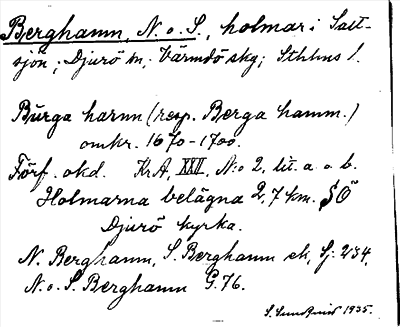 Berghamn, N. o. S., holmar i Salt-
sjön; Djurö sn; Värmdö skg; Sthlms l.
Bürga hamn (resp. Berga hamm.)
omkr. 1670-1700.
Förf. okd. KrA, XXII, N:o 2, lit. a o b.
Holmarna belägna 2,7 km. SO
Djurö kyrka.
N. Berghamn, S. Berghamn ek, Sj: 234,
N. o. S. Berghamn G. 76.
S. 1935.